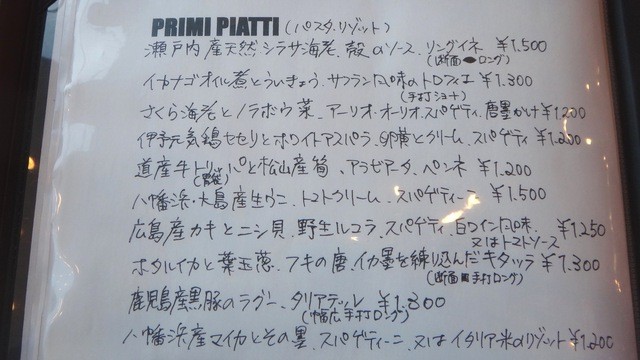 PRIMI PIATTI (パスタ・リゾット)
瀬戸内産天然シラサ海老、殻のソース、リングイネ ¥1,500
(断面 ロング)
イカナゴオイル煮とういきょう、サフラン風味のトロフィエ ¥1,300
(手打ショート)
さくら海老とノラボウ菜、アーリオ・オーリオ、スパゲティ、唐墨かけ ¥1,200
伊予元気鶏セセリとホワイトアスパラ、卵黄とクリーム、スパゲティ ¥1,200
道産牛トリッパと松山産筍、アラビアータ、ペンネ ¥1,200
(胃袋)
八幡浜・大島産生ウニ、トマトクリーム、スパゲティーニ ¥1,500
広島産カキとニシ貝、野生ルコラ、スパゲティ、白ワイン風味、¥1,250
又はトマトソース
ホタルイカと葉玉葱、フキの唐、イカ墨を練り込んだキタッラ ¥1,300
(断面 手打ロング)
鹿児島産黒豚のラグー、タリアテッレ ¥1,300
(幅広手打ロング)
八幡浜産マイカとその墨、スパゲティーニ、又はイタリア米のリゾット ¥1,200